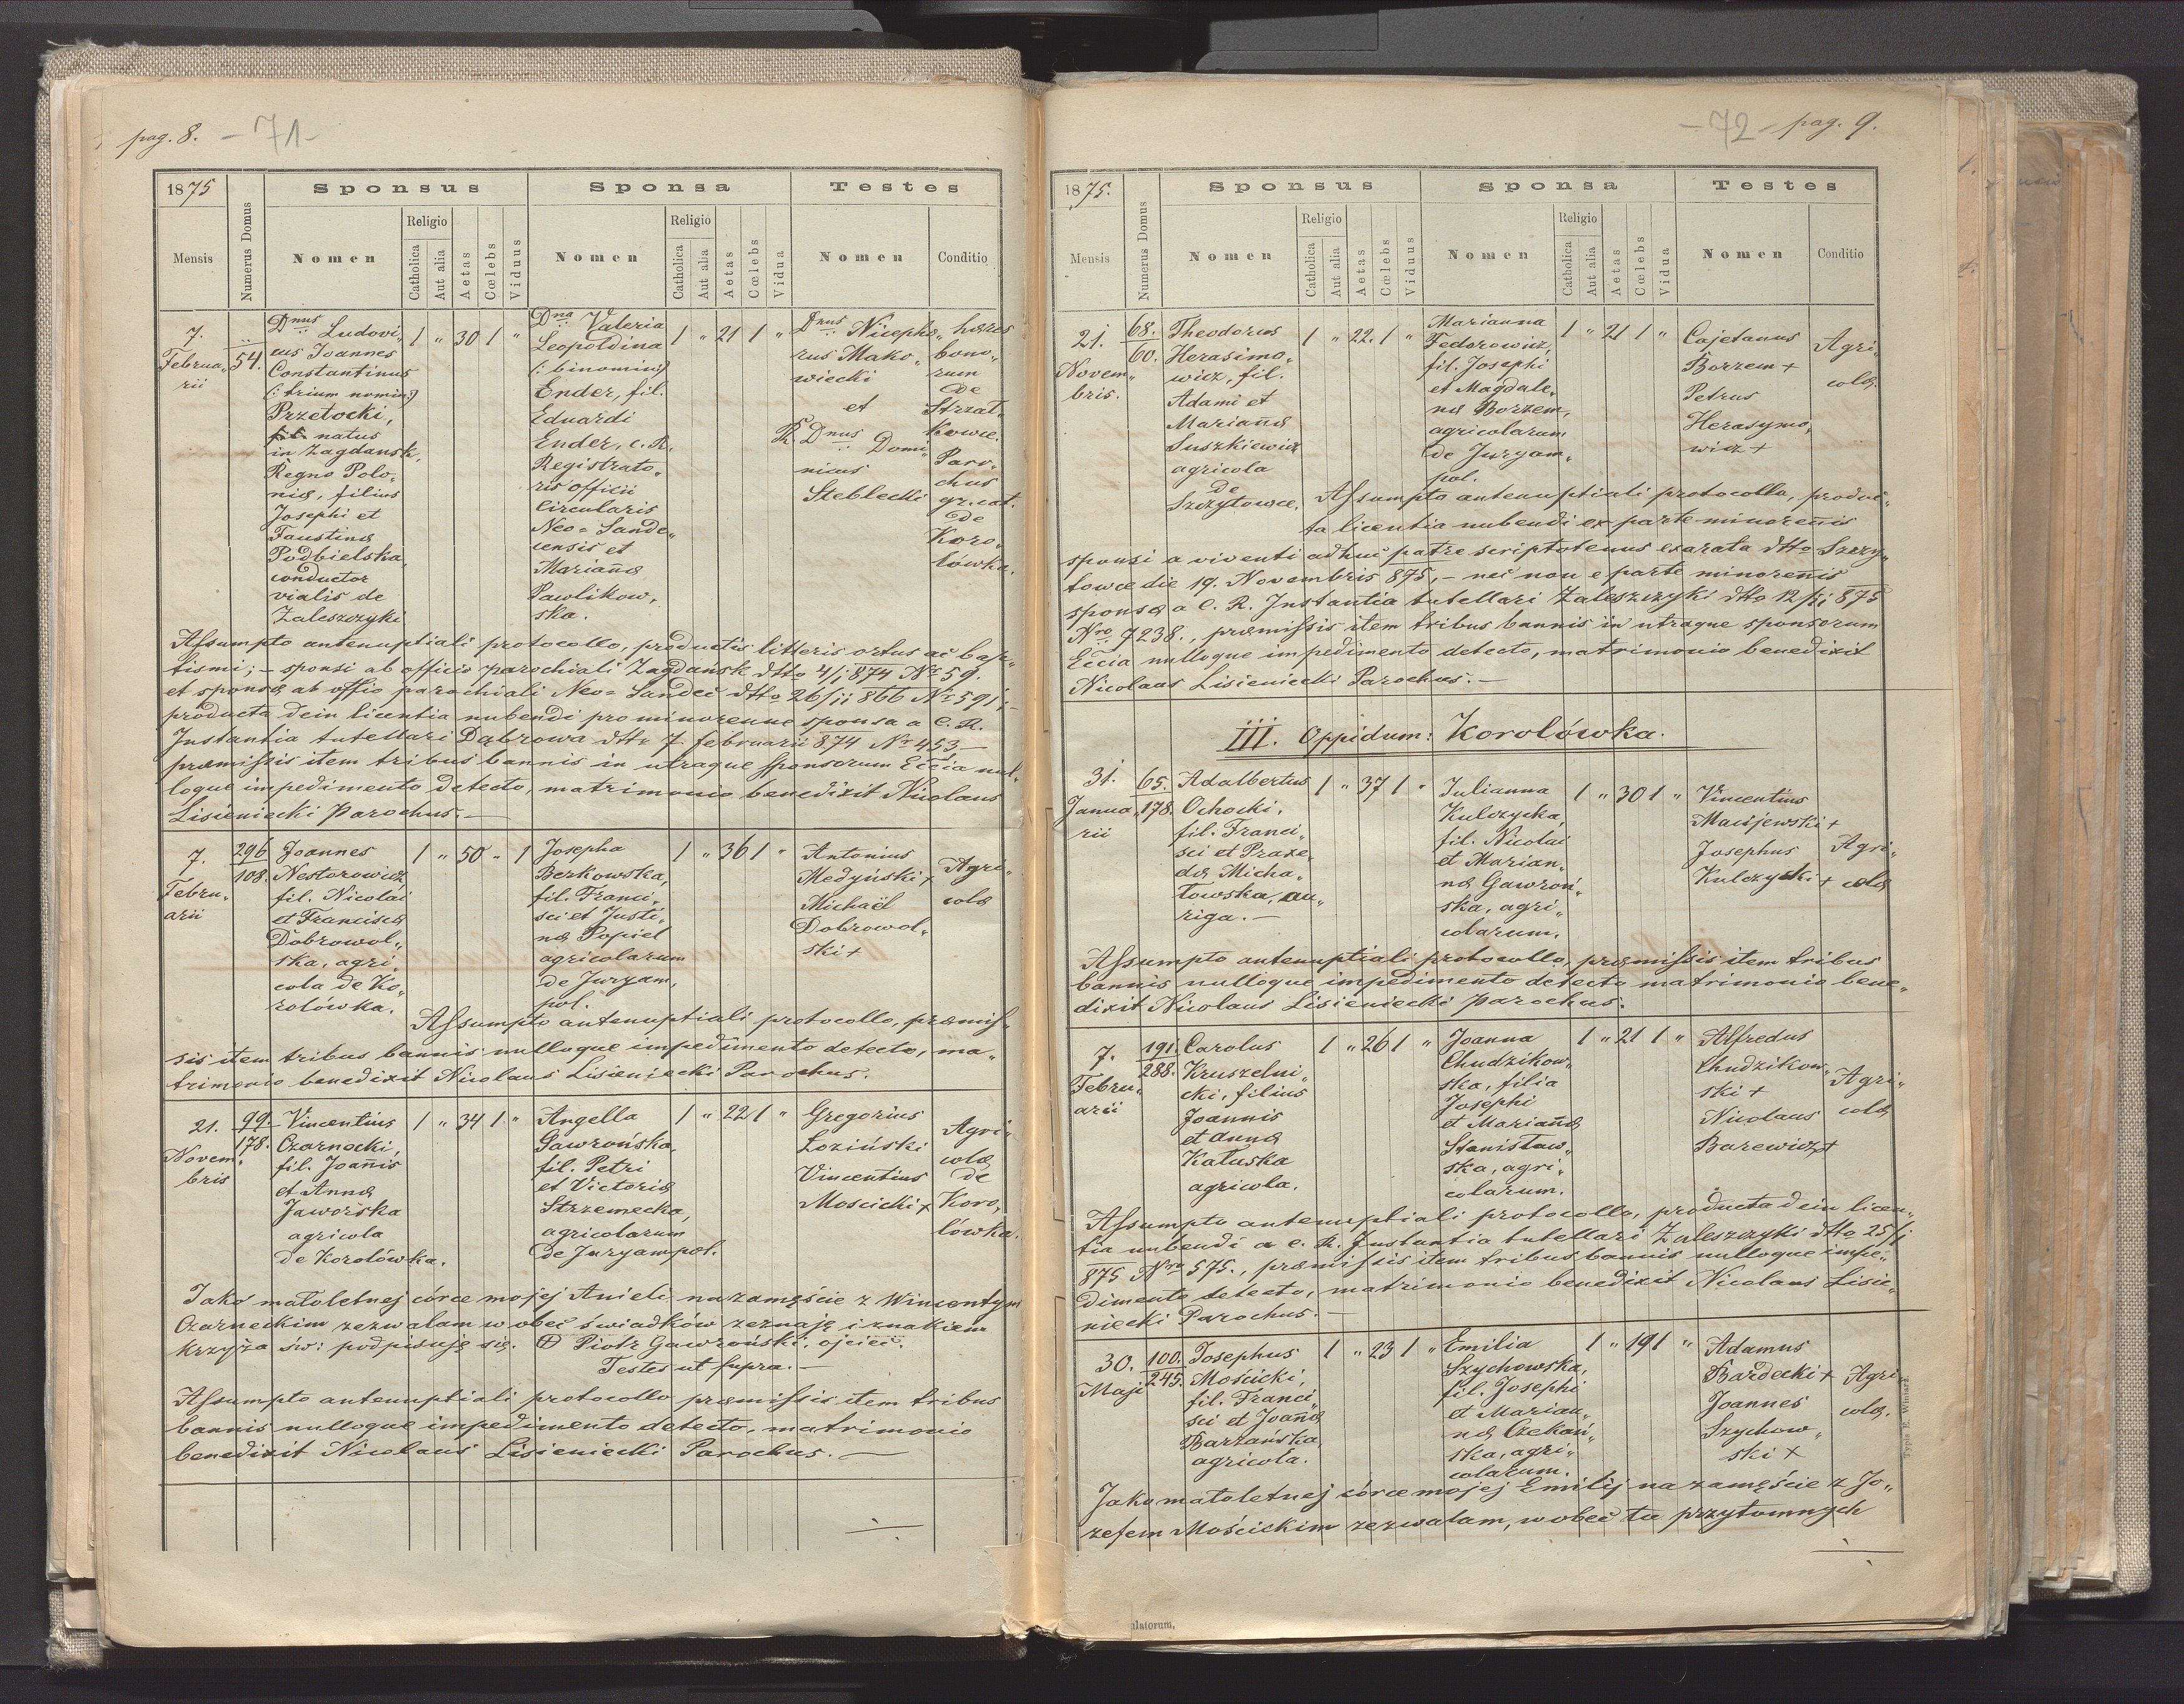 pag. 8. - 71 -
1875
Sponsus
Sponsa
Testes
Mensis
Numerus Domus
Nomen
Religio
Catholica
Aut alia
Aetas
Cœlebs
Viduus
Nomen
Religio
Catholica
Aut alia
Aetas
Cœlebs
Vidua
Nomen
Conditio
7.
Februa„
rii
54.
Dnus Ludovi„
cus Joannes
Constantinus
(: trium nomin:)
Przetocki,
natus
in Zagdansk,
Regno Polo„
niæ, filius
Josephi et
Faustinæ
Podbielska,
conductor
vialis de
Zaleszczyki
1 „ 30 1 „
Dna Valeria
Leopoldina
(: binomin:)
Ender, fil.
Eduardi
Ender, c. R.
Registrato„
ris officii
Circularis
Neo= Sande„
censis et
Mariañæ
Pawlikow„
ska.
1 „ 21 1 „
Dnus Nicepho„
rus Mako„
wiecki
et
Dnus Domi„
nicus
Steblecki
hæres
bono„
rum
de
Strzał„
kowce.
Paro„
chus
gr. cat.
de
Koro„
lówka.
Assumpto antenuptiali protocollo, productis litteris ortus ac bap„
tismi; – sponsi ab officio parochiali Zagdańsk dtto 4/i 874 No 59.
et sponsæ ab offio parochiali Neo= Sandeč dtto 26/ii 866 No 591; –
producta dein licentia nubendi pro minorenne sponsa a C. R.
Instantia tutellari Dąbrowa dtto 7. februarii 874 No 453, –
præmissis item tribus bannis in utraque sponsorum Eccia nul„
loque impedimento detecto, matrimonio benedixit Nicolaus
Lisieniecki Parochus. –
7.
Febru„
arii
296
108.
Joannes
Nestorowicz
fil. Nicolai
et Franciscæ
Dobrowol„
ska, agri„
cola de Ko„
rolówka.
1 „ 50 „ 1
Josepha
Berkowska,
fil. Franci„
sci et Justi„
næ Popiel
agricolarum
de Juryam„
pol.
1 „ 36 1 „
Antonius
Medyński +
Michaël
Dobrowol„
ski +
Agri„
colæ
Assumpto antenuptiali protocollo, præmis„
sis item tribus bannis nulloque impedimento detecto, ma„
trimonio benedixit Nicolaus Lisieniecki Parochus.
21.
Novem„
bris
99.
178.
Vincentius
Czarnecki,
fil. Joañis
et Annæ
Jaworska
agricola
de Korolówka.
1 „ 34 1 „
Angella
Gawrońska,
fil. Petri
et Victoriæ
Strzemecka,
agricolarum
de Juryampol.
1 „ 22 1 „
Gregorius
Łoziński
Vincentius
Moscicki +
Agri„
colæ
de
Koro„
lówka.
Jako małoletnej córce mojej Anieli na zamęście z Wincentym
Czarneckim zezwalam w obec świadków zeznaję i znakiem
krzyża św: podpisuję się. (+) Piotr Gawroński, ojciec.
Testes ut supra. –
Assumpto antenuptiali protocollo præmissis item tribus
bannis nulloque impedimento detecto, matrimonio
benedixit Nicolaus Lisieniecki Parochus. –
- 72 - pag. 9.
1875.
Sponsus
Sponsa
Testes
Mensis
Numerus Domus
Nomen
Religio
Catholica
Aut alia
Aetas
Cœlebs
Viduus
Nomen
Religio
Catholica
Aut alia
Aetas
Cœlebs
Vidua
Nomen
Conditio
21.
Novem„
bris.
68.
60.
Theodorus
Herasimo„
wicz, fil.
Adami et
Mariañæ
Suszkiewicz
agricola
de
Szczytowce.
1 „ 22. 1 „
Marianna
Fedorowicz,
fil. Josephi
et Magdale„
næ Borzem,
agricolarum
de Juryam„
pol.
1 „ 21 1 „
Cajetanus
Borzem +
Petrus
Herasymo„
wicz +
Agri„
colæ.
Assumpto antenuptiali protocollo, produc„
ta licentia nubendi ex parte minoreñis
sponsi a viventi adhuc patre scriptotenus exarata dtto Szczy„
towce die 19. Novembris 875, – nec non e parte minoreñis
sponsæ a C. R. Instantia tutellari Zaleszczyki dtto 12/ii 875
Nro 7238., præmissis item tribus bannis in utraque sponsorum
Eccia nulloque impedimento detecto, matrimonio benedixit
Nicolaus Lisieniecki Parochus. –
III. Oppidum: Korolówka.
31.
Janua„
rii
65.
178.
Adalbertus
Ochocki,
fil. Franci„
sci et Praxe„
dæ Micha„
łowska, au„
riga. –
1 „ 37 1 „
Julianna
Kulczycka,
fil. Nicolai
et Marian„
næ Gawroń„
ska, agri„
colarum.
1 „ 30 1 „
Vincentius
Maciejewski +
Josephus
Kulczycki +
Agri„
colæ
Assumpto antenuptiali protocollo, præmissis item tribus
bannis nulloque impedimento detecto matrimonio bene„
dixit Nicolaus Lisieniecki Parochus.
7.
Febru„
arii
191.
288.
Carolus
Kruszelni„
cki, filius
Joannis
et Annæ
Kałuska
agricola.
1 „ 26 1 „
Joanna
Chudzikow„
ska, filia
Josephi
et Mariañæ
Stanisław„
ska, agri„
colarum.
1 „ 21 1 „
Alfredus
Chudzikow„
ski +
Nicolaus
Barewicz +
Agri„
colæ
Assumpto antenuptiali protocollo, producta dein licen„
tia nubendi a C. R. Instantia tutellari Zaleszczyki dtto 25/i
875 Nro 575., præmissis item tribus bannis nulloque impe„
dimento detecto, matrimonio benedixit Nicolaus Lisie„
niecki Parochus. –
30.
Maji
100.
245.
Josephus
Mościcki,
fil. Franci„
sci et Joañæ
Barzańska,
agricola.
1 „ 23 1 „
Emilia
Szychowska,
fil. Josephi
et Marian„
næ Czekań„
ska, agri„
colarum.
1 „ 19 1 „
Adamus
Bardecki +
Joannes
Szychow„
ski +
Agri„
colæ.
Jako małoletnej córce mojej Emilij na zamęście z Jó„
zefem Mościckim zezwalam, w obec tu przytomnych
Typis E. Winiarz.
ulatorum.